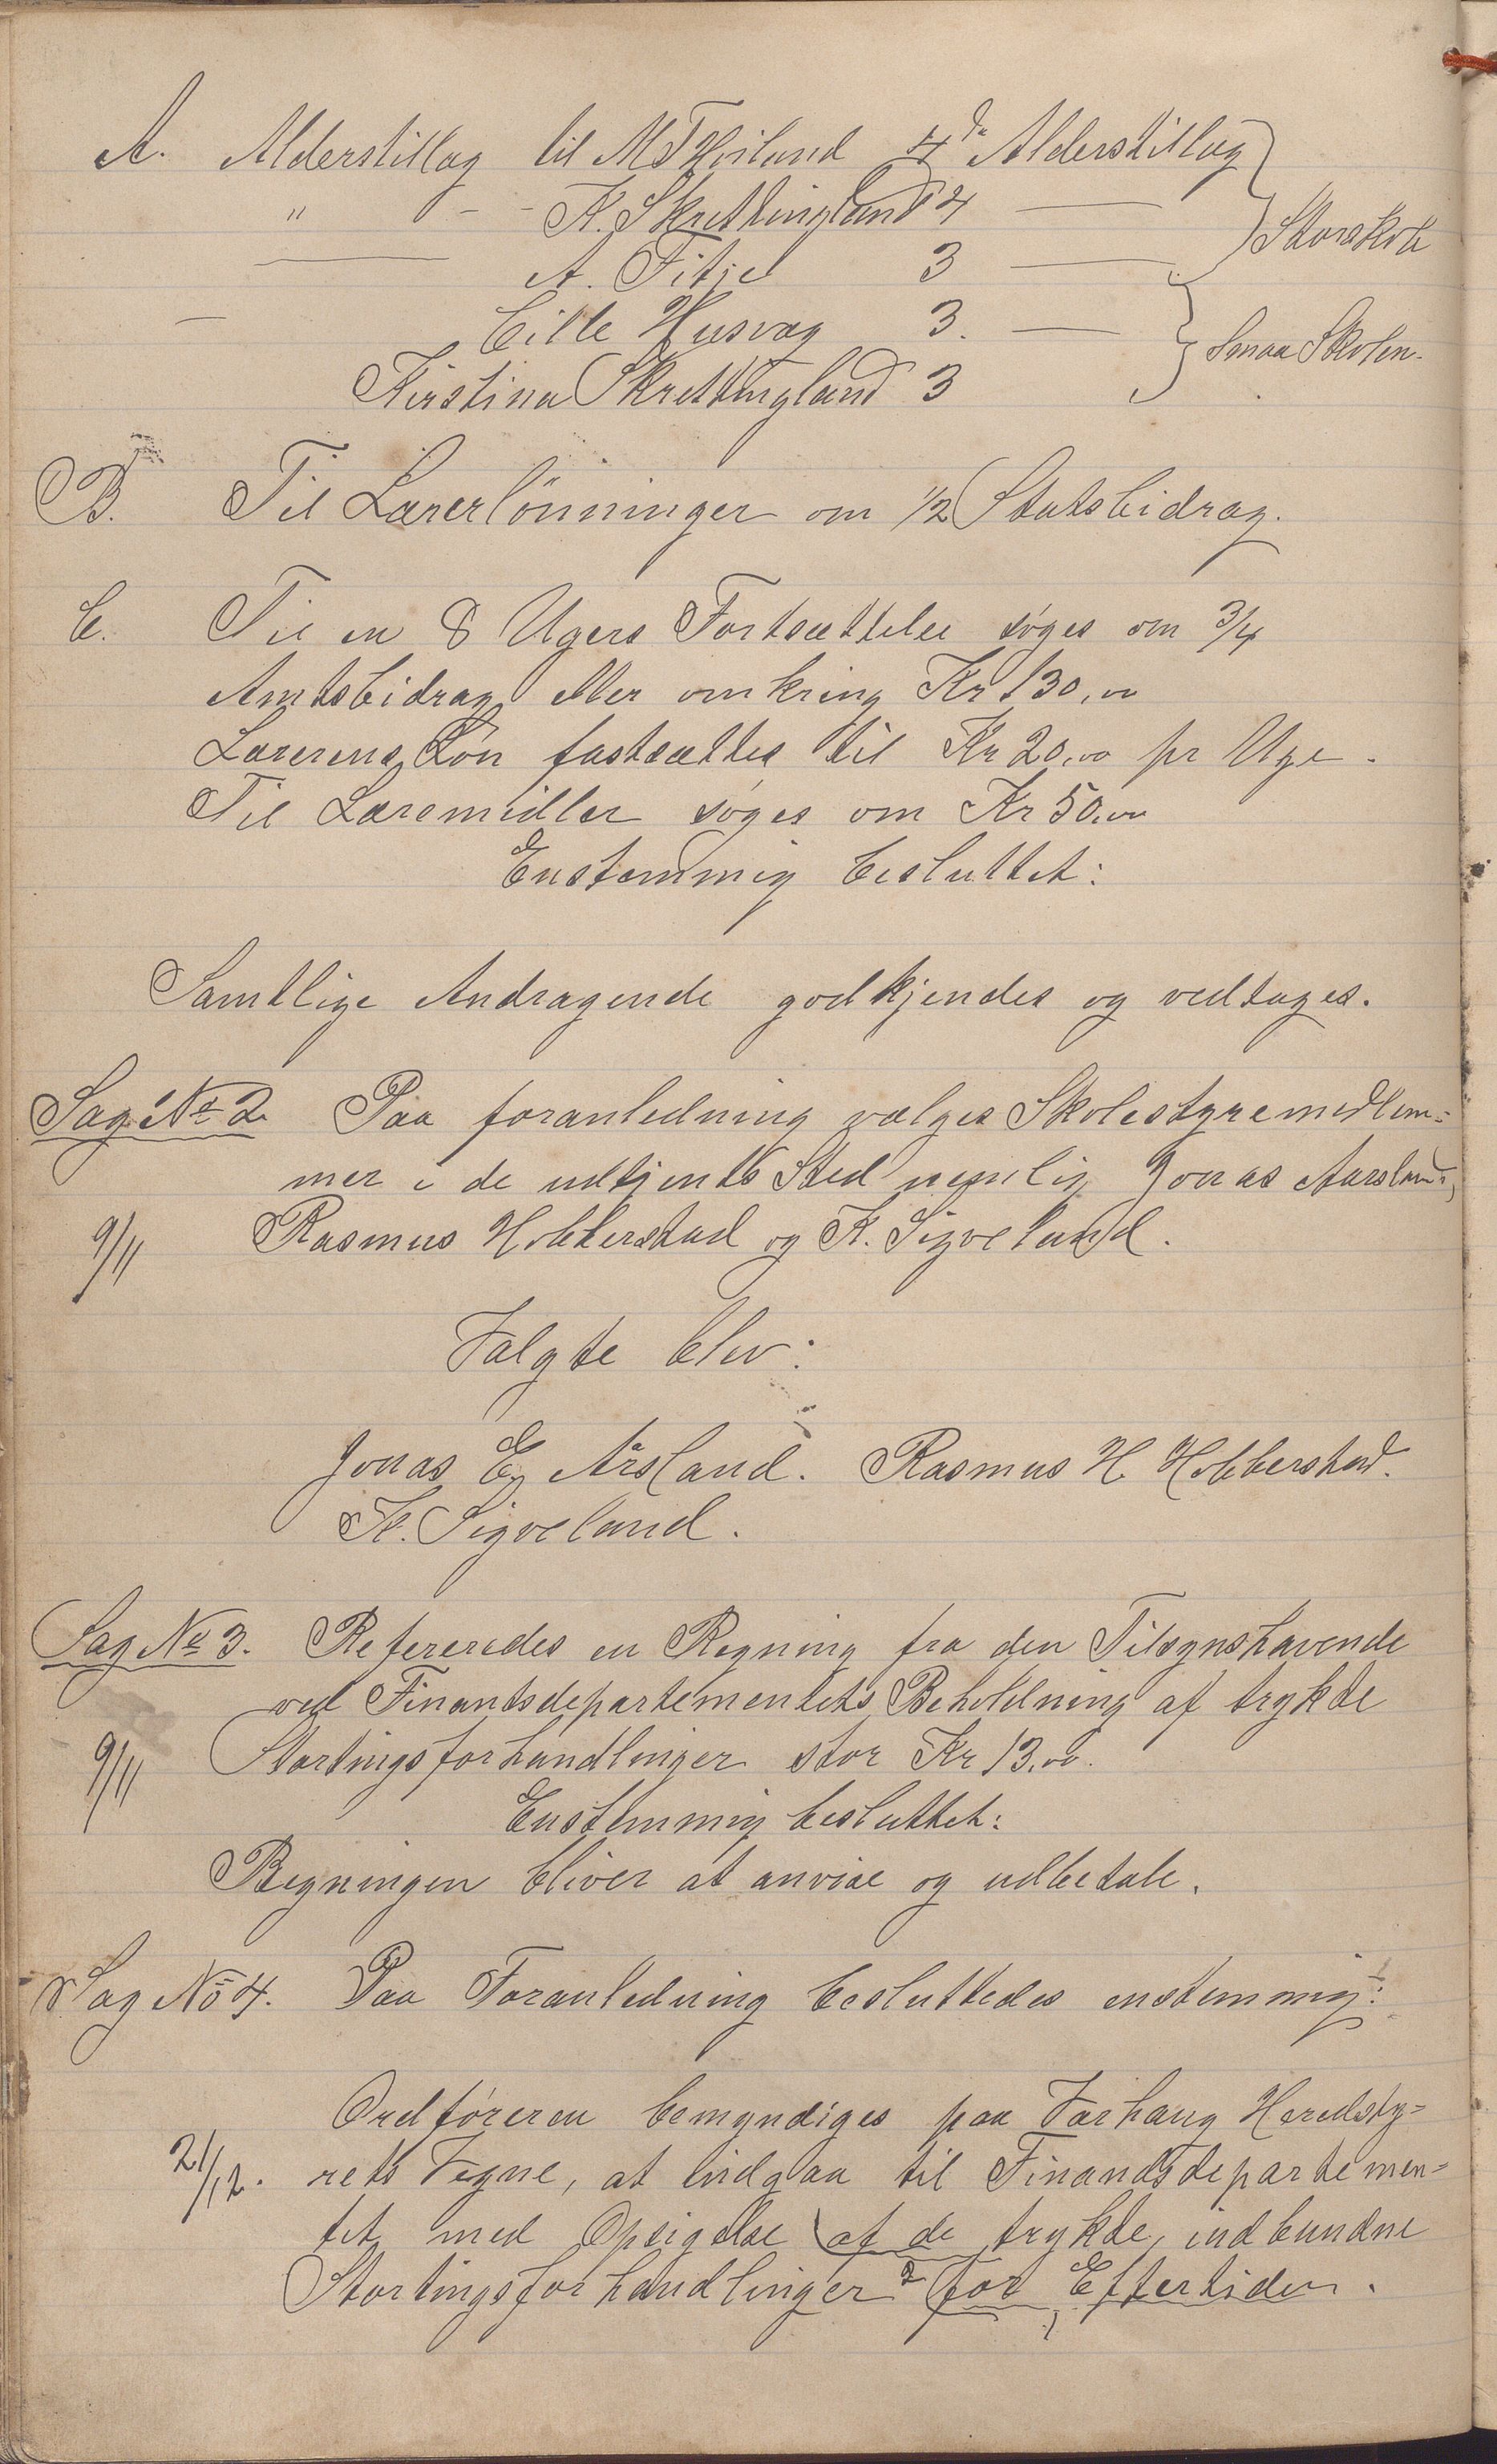 A. Alderstillag til M T Høiland 4de Alderstillag
" - - K. Skrettingland 4 — Storskole
A. Fitje 3 —
Cille Husvag 3. — Smaa Skolen.
Kirstina Skrettingland 3
B. Til Lærerlönninger om 1/2 Statsbidrag.
C. Til en 8 Ugers Fortsættelse søges om 3/4
Amtsbidrag eller omkring Kr 130,00
Lærerens Løn fastsættes til Kr 20,00 pr Uge.
Til Læremidler søges om Kr 50,00
Enstemmig besluttet:
Samtlige Andragende godkjendes og vedtages.
Sag No 2. Paa foranledning vælges Skolestyremedlem=
mer i de udtjents Sted nemlig Jonas Aarsland,
9/11 Rasmus Hobberstad og K. Sigveland.
Valgte blev:
Jonas E. Årsland. Rasmus H. Hobberstad.
K. Sigveland.
Sag No 3. Refereredes en Regning fra den Tilsynshavende
ved Finantsdepartementets Beholdning af trykte
9/11 Stortingsforhandlinger stor Kr 13.00.
Enstemmig besluttet:
Regningen bliver at anvise og udbetale.
Sag No 4. Paa Foranledning besluttedes enstemmig:
Ordføreren bemyndiges paa Varhaug Heredsty=
21/12. rets Vegne, at indgaa til Finandsdepartemen=
tet med Opsigelse af de trykte, indbundne
Stortingsforhandlinger for Eftertiden.